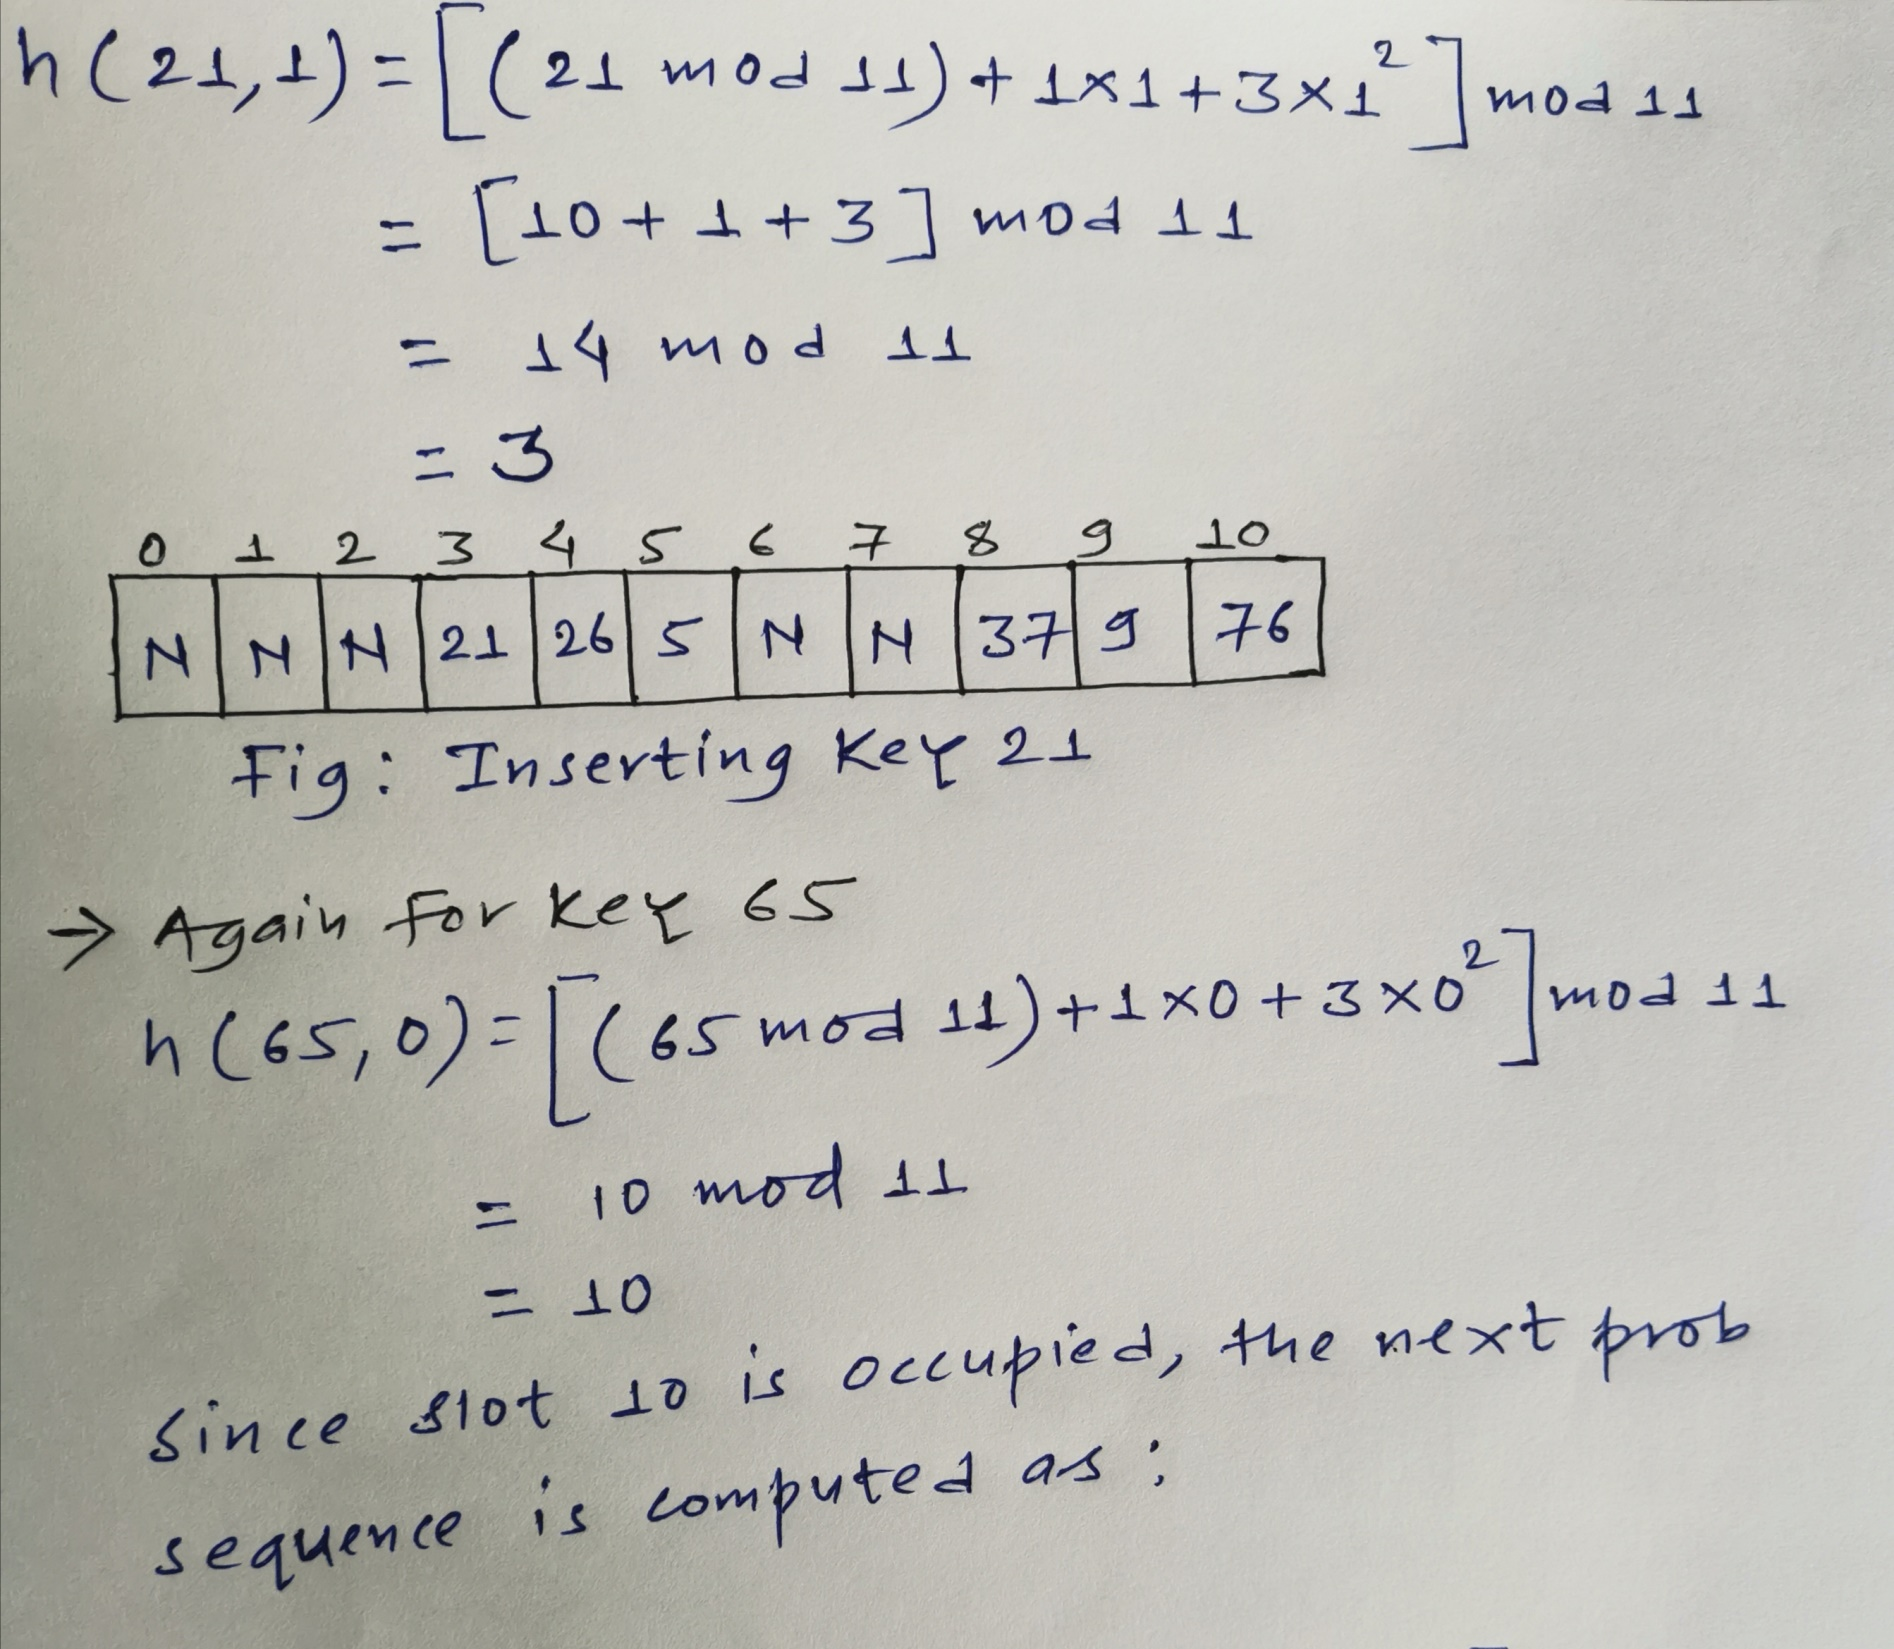 h(21,1)=[(21 mod 11)+1×1+3×1²] mod 11
= [10+1+3] mod 11
= 14 mod 11
= 3
0 1 2 3 4 5 6 7 8 9 10
N N N 21 26 5 N N 37 9 76
Fig: Inserting Key 21
→ Again for Key 65
h(65,0)=[(65 mod 11)+1×0+3×0²] mod 11
= 10 mod 11
= 10
Since slot 10 is occupied, the next prob
sequence is computed as: